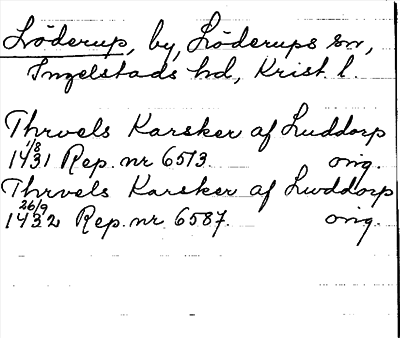 Löderup, by, Löderups sn,
Ingelstads hd, Krist. l.
Thrvels Karsker af Luddorp
1431 1/8 Rep. nr 6513. orig.
Thrvels Karsker af Lwddorp
1432 26/9 Rep. nr. 6587. orig.